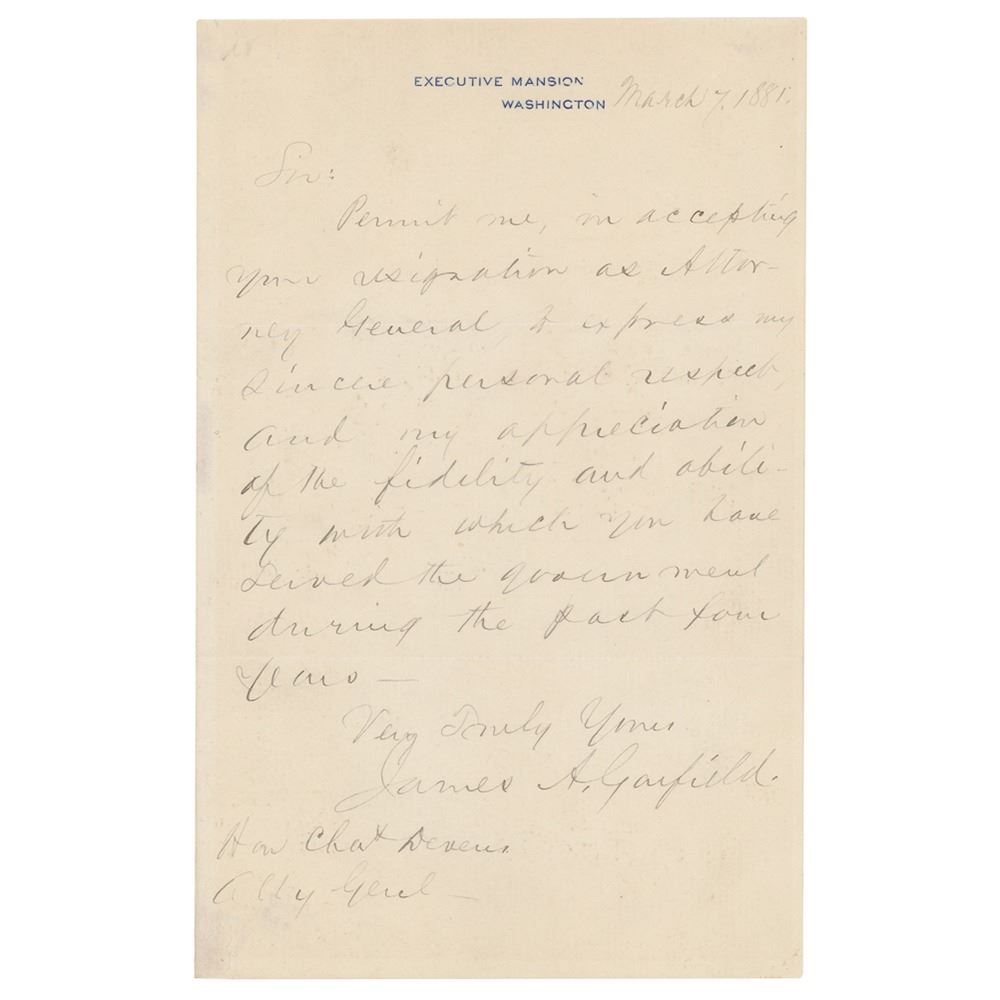 EXECUTIVE MANSION
WASHINGTON March 7. 1881.
Sir:
Permit me, in accepting
your resignation as Attor-
ney General, to express my
sincere personal respect,
and my appreciation
of the fidelity and abili-
ty with which you have
served the government
during the past four
years —
Very Truly Yours
James A. Garfield.
Hon Chas Devens
Atty Genl —